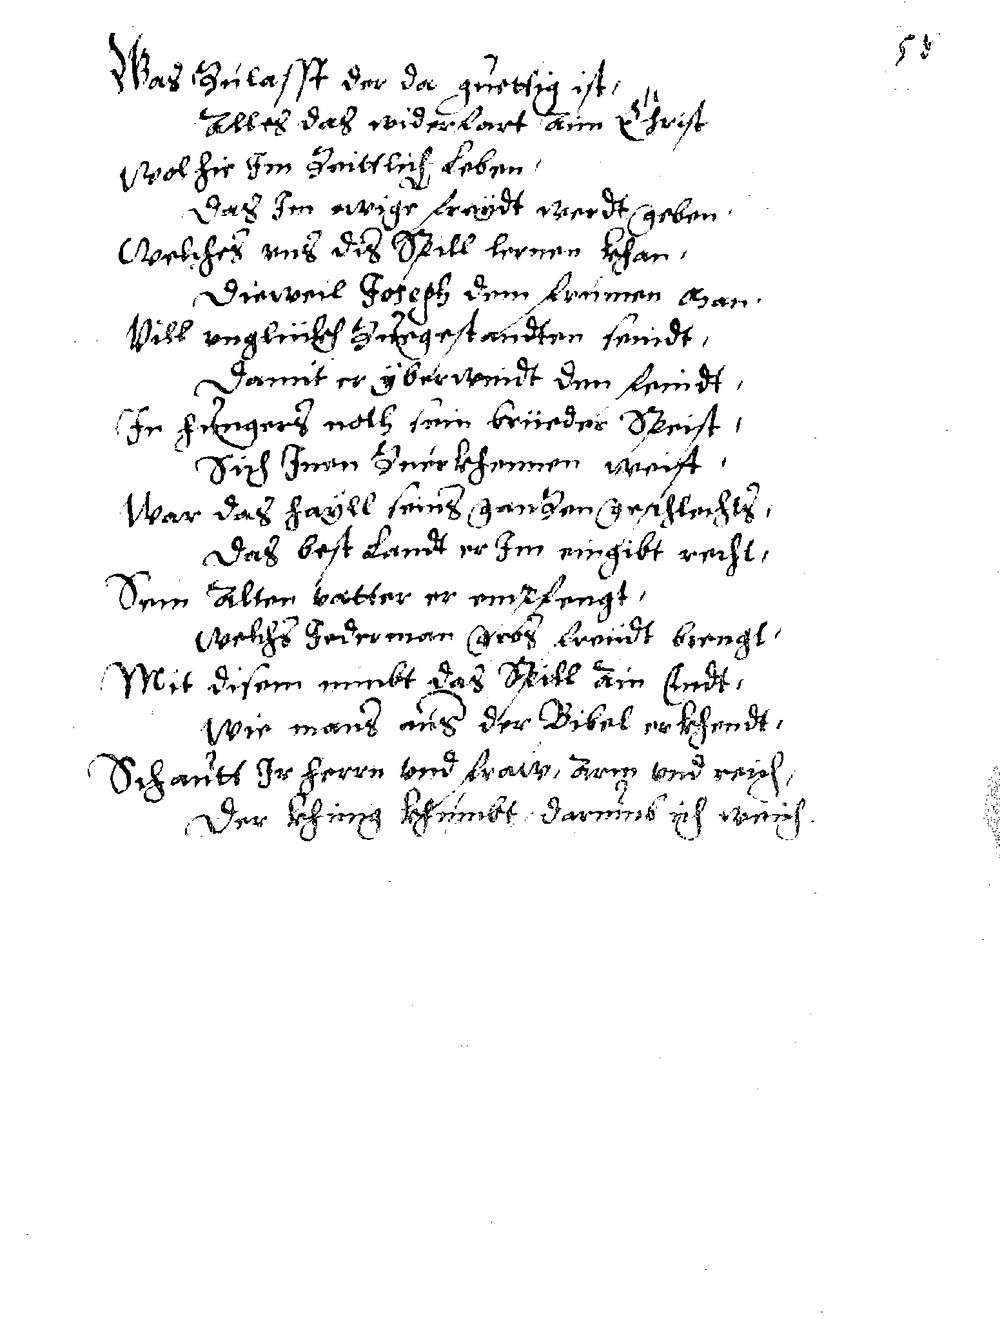 58
Was Zulasst der da güettig ist,
Alles das widerfart aim Christ
Wol hie Im Zeittlich Leben,
Das Im ewige fraydt werdt geben.
Welches uns dis Spill lernen khan,
Dieweil Joseph dem frumen Man.
Vill unglückh Zuegestandten seindt,
Damit er yberwindt den feindt,
In hungers noth sein brüeder Speist,
Sich Inen Zuerkhennen weist,
War das hayll seins ganzen geschlechts,
Das best Landt er Im eingibt recht,
Sein Alten vatter er empfengt,
Welchs Jederman gros freüdt brengt,
Mit disem nimbt das Spill ain Endt,
Wie mans aus der Bibel erkhendt,
Schautt Ir herrn und fraw, Arm und reich,
Der khinig khumbt, darumb ich weich.